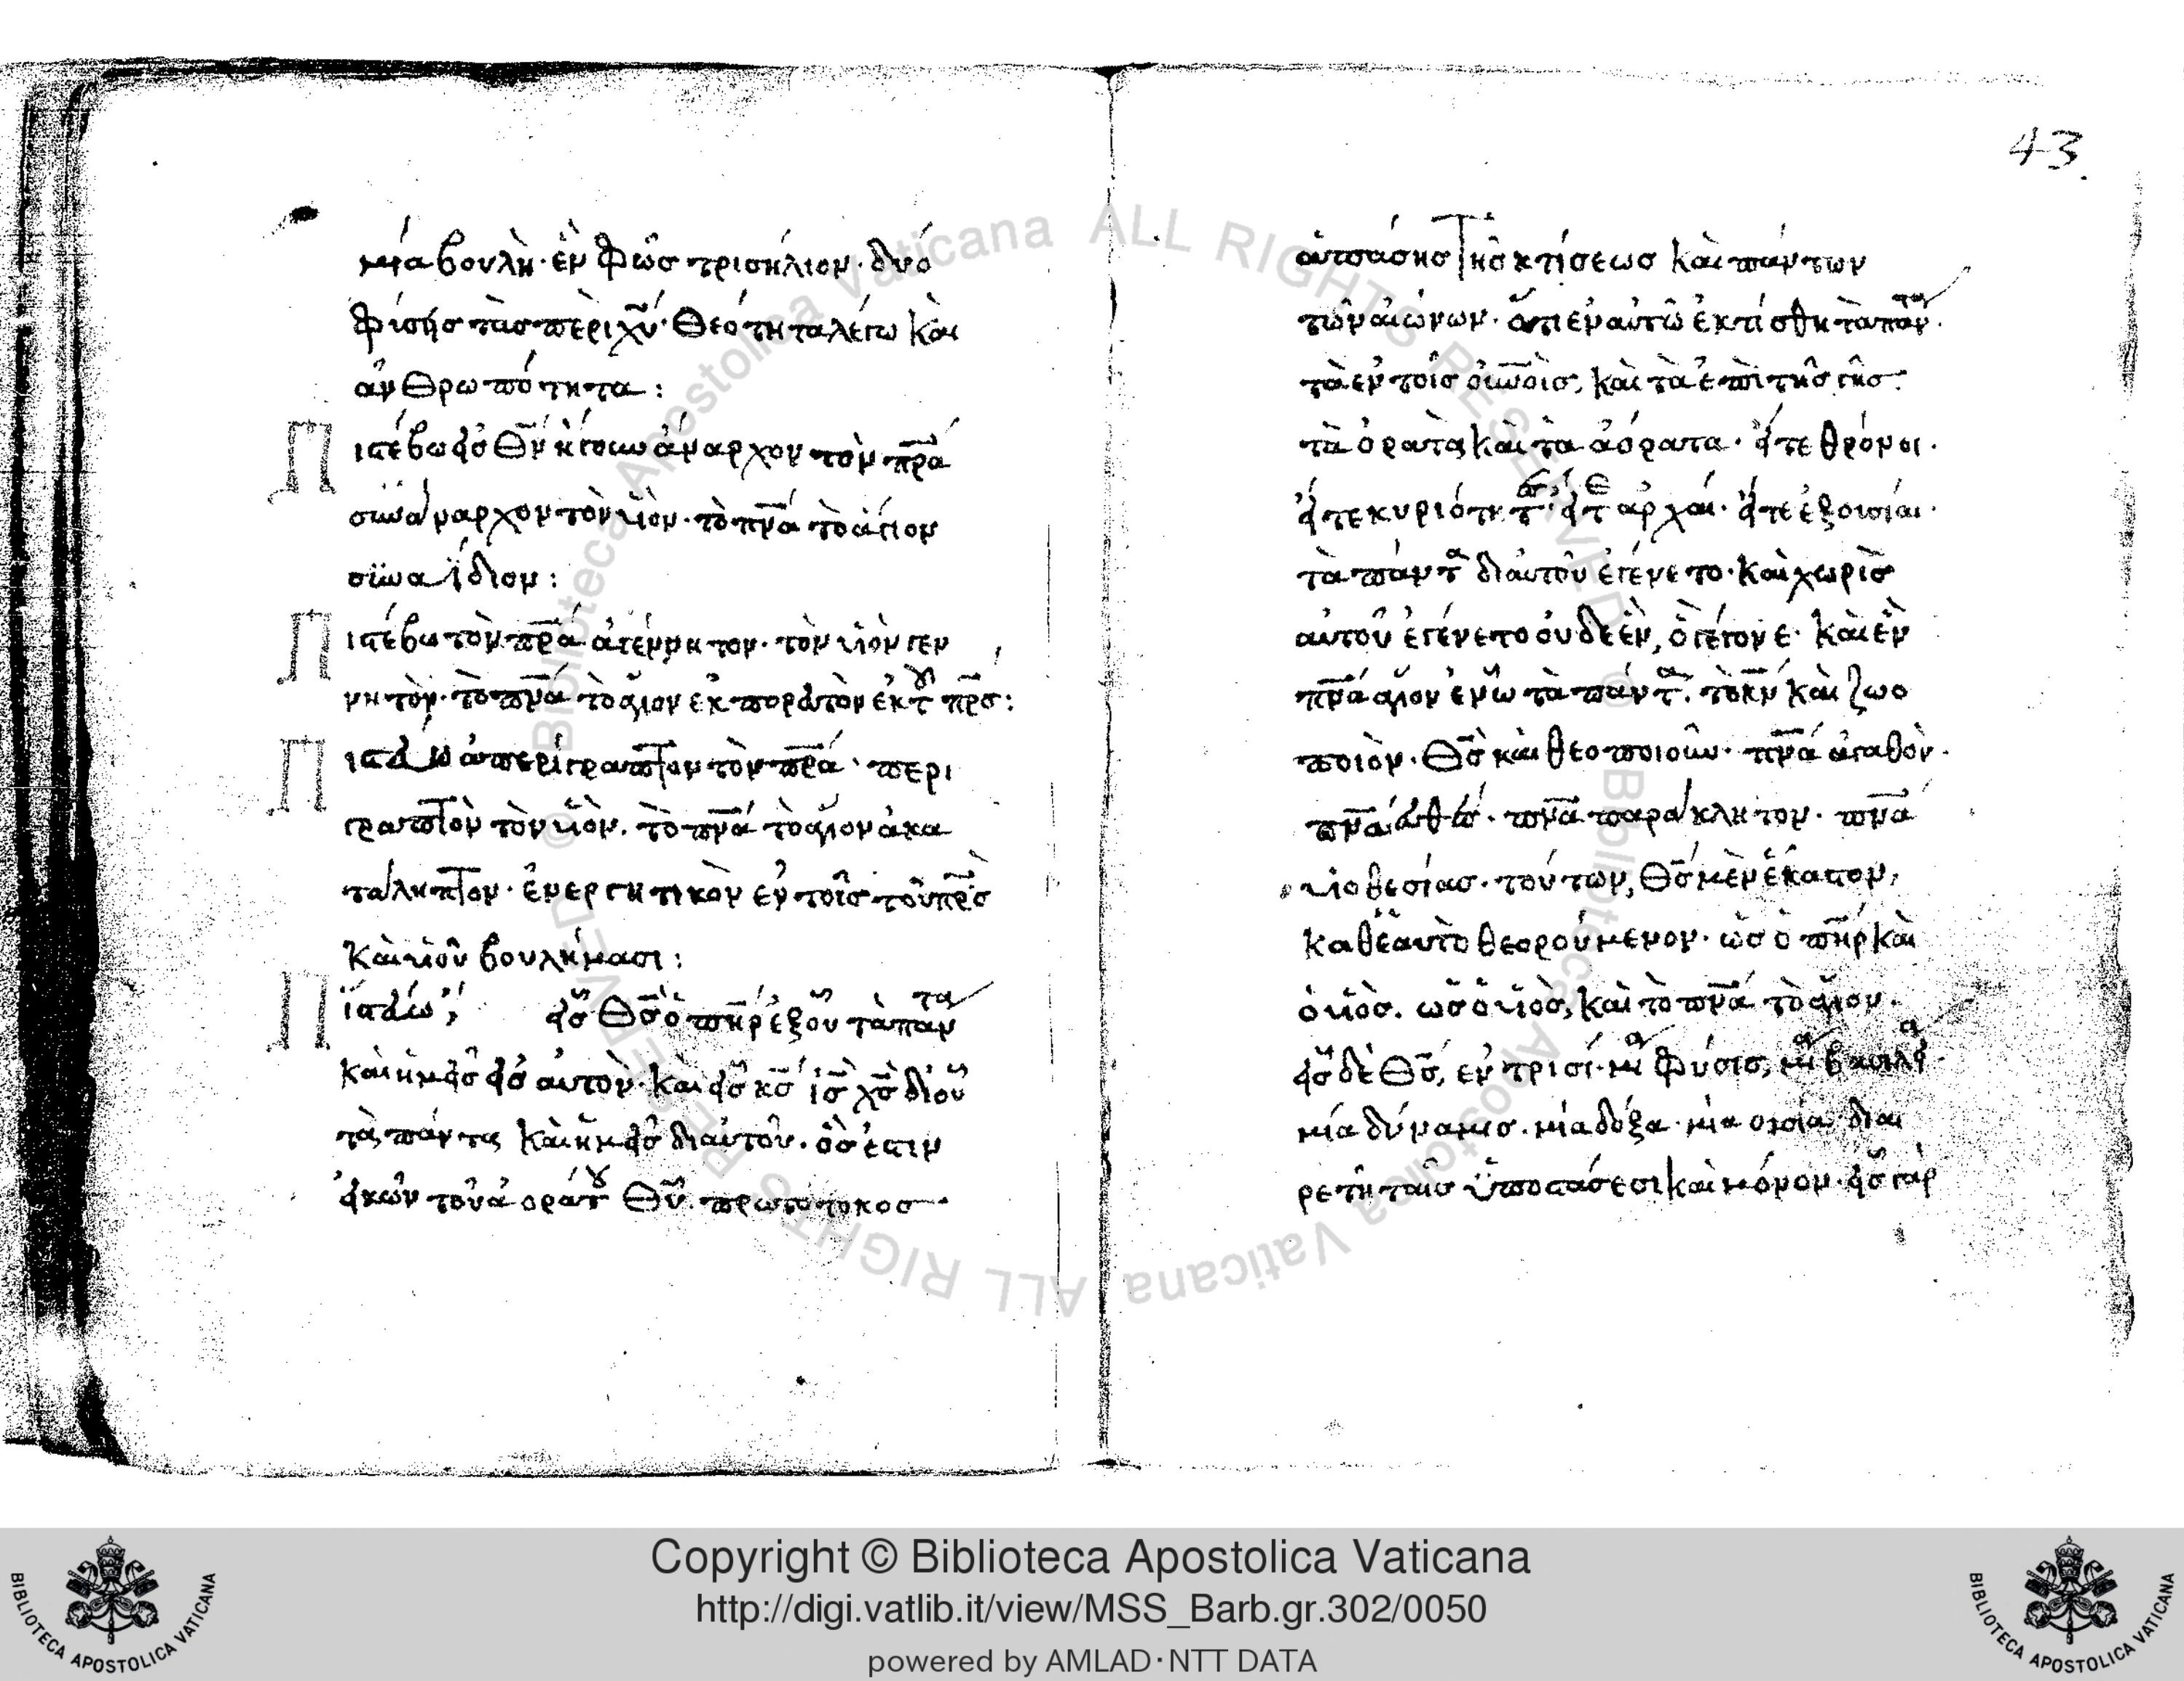 μία βουλὴ· ἓν φῶς τρισήλιον· δυό
φύσης τὰς περὶ χῦ· θεότητα λέγω καὶ
ἀνθρωπότητα:
Πιστέβω εἰς θν ἤγουν ἄναρχον τὸν πρα
συνάναρχον τὸν υἱὸν· τὸ πνα τὸ ἅγιον
συναΐδιον:
Πιστέβω τὸν πρα ἀγέννητον· τὸν υἱὸν γεν
νητὸν· τὸ πνα τὸ ἅγιον ἐκπορευτὸν ἐκ τοῦ πρς:
Πιστεύω ἀπερίγραπτον τὸν πρα· περι
γραπτὸν τὸν υἱὸν. τὸ πνα τὸ ἅγιον ἀκα
τάληπτον· ἐνεργητικὸν ἐν τοῖς τοῦ πρς
καὶ υἱοῦ βουλήμασι:
Πιστεύω εἷς θς ὁ πηρ ἐξ οὗ τὰ πάντα
καὶ ἡμεῖς εἰς αὐτὸν· καὶ εἷς κς ις χς δι οὗ
τὰ πάντα καὶ ἡμεῖς δι αὐτοῦ. ὅς ἐστιν
εἰκὼν τοῦ ἀοράτου θυ. πρωτότοκος
ἁπάσης τῆς κτίσεως καὶ πάντων
τῶν αἰώνων. ὅτι ἐν αὐτῶ ἐκτίσθη τὰ πάντα.
τὰ ἐν τοῖς οὐνοῖς, καὶ τὰ ἐπὶ τῆς γῆς.
τὰ ὁρατὰ καὶ τὰ ἀόρατα· εἴτε θρόνοι.
εἴτε κυριότητες· εἴτε ἀρχαί. εἴτε ἐξουσίαι.
τὰ πάντα δι αὐτοῦ ἐγένετο. καὶ χωρὶς
αὐτοῦ ἐγένετο οὐδεὲν, ὃ γέγονε· καὶ ἓν
πνα ἅγιον ἐν ὧ τὰ πάντα. τὸ κν καὶ ζωο
ποιὸν. θς καὶ θεοποιοῦν· πνα ἀγαθὸν.
πνα εὐθές. πνα παράκλητον. πνα
υἱοθεσίας. τούτων, θς μὲν ἕκαστον,
καθ ἑαυτὸ θεορούμενον. ὡς ὁ πηρ καὶ
ὁ υἱὸς. ὡς ὁ υἱὸς, καὶ τὸ πνα τὸ ἅγιον.
εἷς δὲ θς, ἐν τρισί. μία φύσις, μία βασιλεία.
μία δύναμις. μία δόξα. μία οὐσία διαι
ρετὴ ταῖς ὑποστάσεσι καὶ μόνον. εἷς γὰρ
43.
Copyright © Biblioteca Apostolica Vaticana
http://digi.vatlib.it/view/MSS_Barb.gr.302/0050
powered by AMLAD·NTT DATA